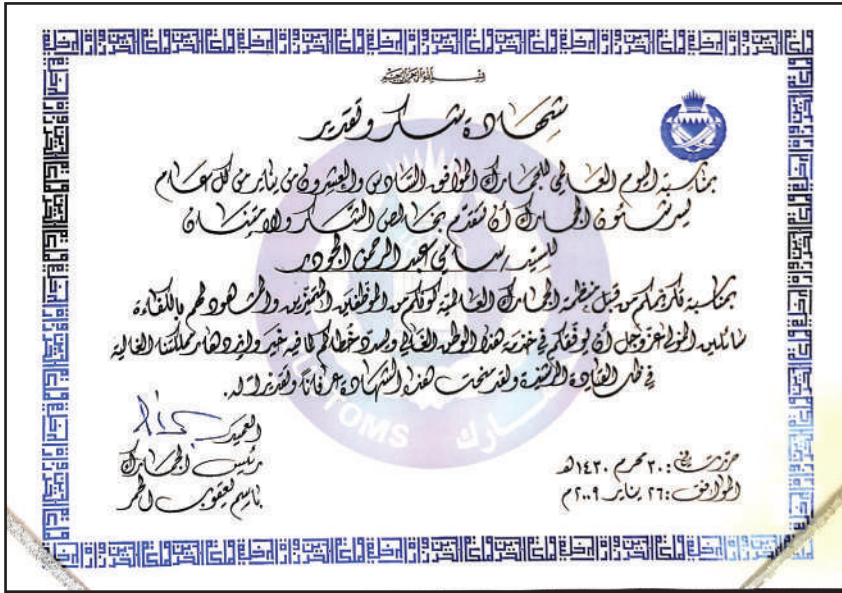 بسم الله الرحمن الرحيم
شهادة شكر وتقدير
بمناسبة اليوم العالمي للجمارك الموافق السادس والعشرون من يناير من كل عام
يسر شئون الجمارك أن تتقدم بخالص الشكر والامتنان
للسيد سامي عبد الرحمن الجودر
بمناسبة تكريمكم من قبل منظمة الجمارك العالمية كونكم من الموظفين المتميزين والمشهود لهم بالكفاءة
سائلين المولى عز وجل أن يوفقكم في خدمة هذا الوطن الغالي ويسدد خطاكم لما فيه خير وازدهار مملكتنا الغالية
في ظل القيادة الرشيدة ولقد منحت هذه الشهادة عرفاناً وتقديراً له.
العميد
رئيس الجمارك
باسم يعقوب الحمر
حررت في: ٣٠ محرم ١٤٣٠هـ
الموافق: ٢٦ يناير ٢٠٠٩م
CUSTOMS
الجمارك